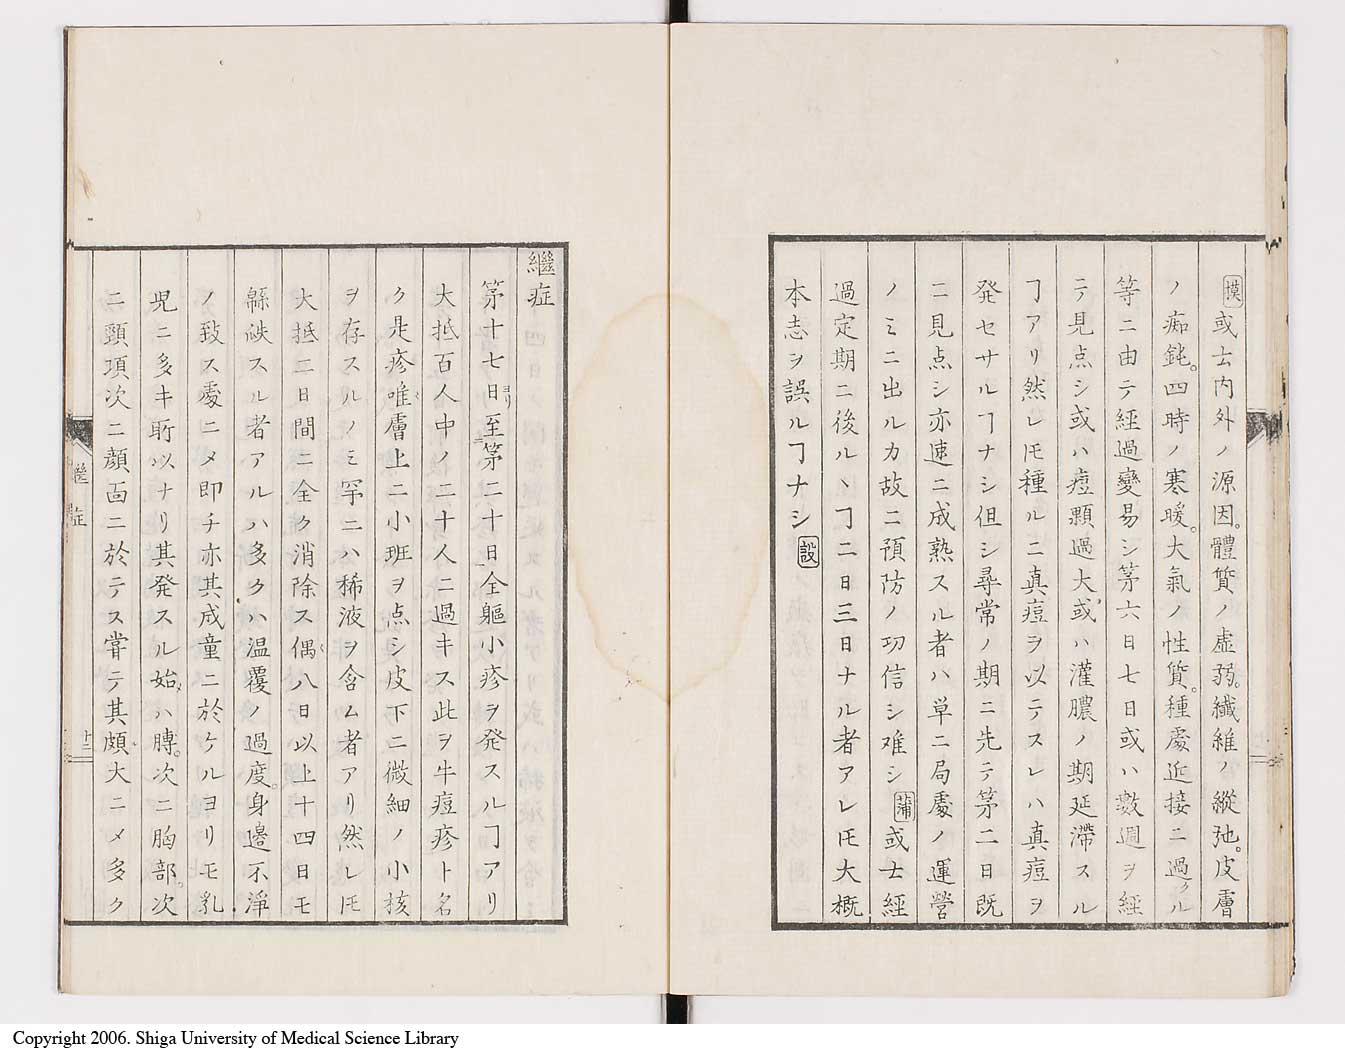 模 或ハ内外ノ源因。體質ノ虚弱。纎維ノ縱弛。皮膚
ノ痴鈍。四時ノ寒暖。大氣ノ性質。種處近接ニ過クル
等ニ由テ經過變易シ苐六日七日或ハ數週ヲ經
テ見点シ或ハ痘顆過大或ハ灌膿ノ期延滯スル
ヿアリ然レ𪜈種ルニ真痘ヲ以テスレハ真痘ヲ
発セサルヿナシ但シ尋常ノ期ニ先テ苐二日既
ニ見点シ亦速ニ成熟スル者ハ単ニ局處ノ運營
ノミニ出ルカ故ニ預防ノ功信シ难シ 蒲 或ハ經
過定期ニ後ルヽヿ二日三日ナル者アレ𪜈大概
本志ヲ誤ルヿナシ 設
繼症
苐十七日ヨリ至苐二十日ニ全軀小疹ヲ発スルヿアリ
大抵百人中ノ二十人ニ過キス此ヲ牛痘疹ト名
ク是疹唯膚上ニ小斑ヲ点シ皮下ニ微細ノ小核
ヲ存スルノミ罕ニハ稀液ヲ含ム者アリ然レ𪜈
大抵二日間ニ全ク消除ス偶八日以上十四日モ
緜㳀スル者アルハ多クハ温覆ノ過度。身邊不淨
ノ致ス處ニメ即チ亦其成童ニ於ケルヨリモ乳
児ニ多キ所以ナリ其発スル始ハ膊。次ニ胸部。次
ニ頸項次ニ顔面ニ於テス甞テ其頗大ニメ多ク
繼症
十二
Copyright 2006. Shiga University of Medical Science Library